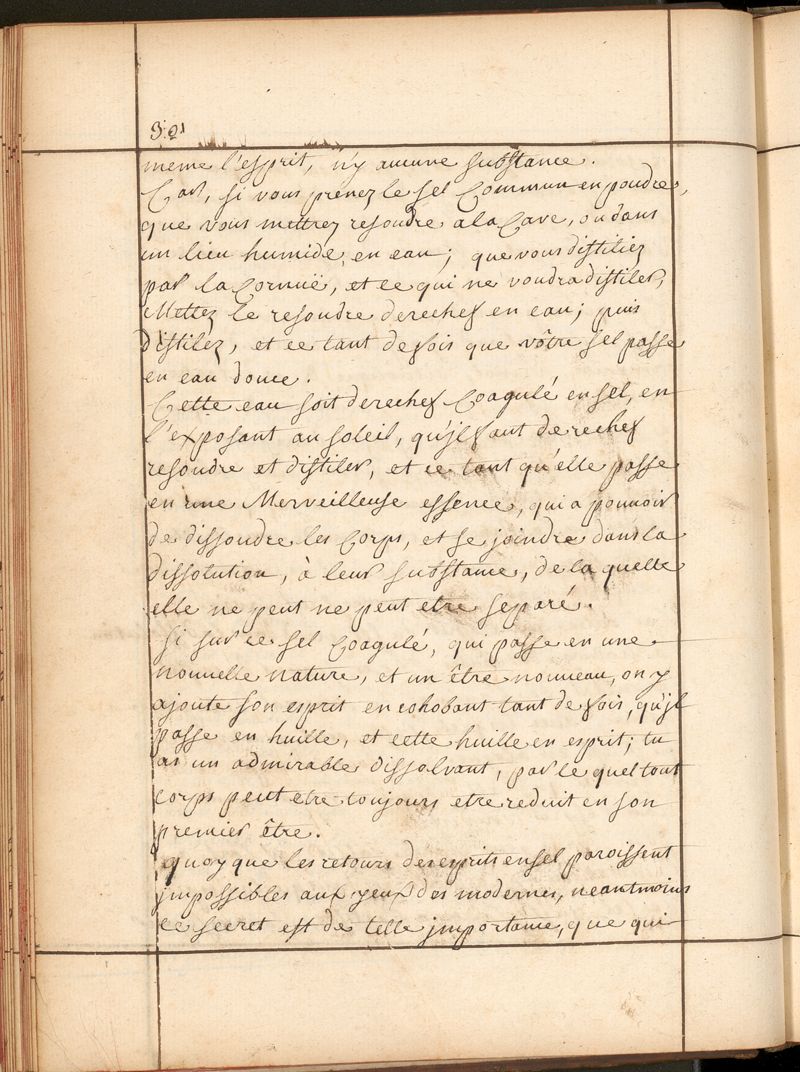 321
meme l'esprit, n'y aucune substance.
Car, si vous prenez le sel Commun en poudre,
que vous mettrez resoudre a la Cave, ou dans
un lieu humide, en eau; que vous distiliez
par la Cornuë, et ce qui ne voudra distiler,
Mettez le resoudre derechef en eau; puis
Distilez, et ce tant de fois que vôtre sel passe
en eau douce.
Cette eau soit derechef Coagulé en sel, en
l'exposant au soleil, qu'jl faut derechef
resoudre et distiler, et ce tant qu'elle passe
en une Merveilleuse essence, qui a pouvoir
de dissoudre les Corps, et se joindre dans la
dissolution, à leur substance, de la quelle
elle ne peut ne peut etre separé.
Si sur ce sel Coagulé, qui passe en une
nouvelle nature, et un être nouveau, on y
ajoute son esprit en cohobant tant de fois, qu'jl
passe en huille, et cette huille en esprit; tu
as un admirable dissolvant, par le quel tout
corps peut etre toujours etre reduit en son
premier être.
quoy que les retours des esprits en sel paroissent
jmpossibles aux yeux des modernes, neantmoins
ce secret est de telle jmportance, que qui